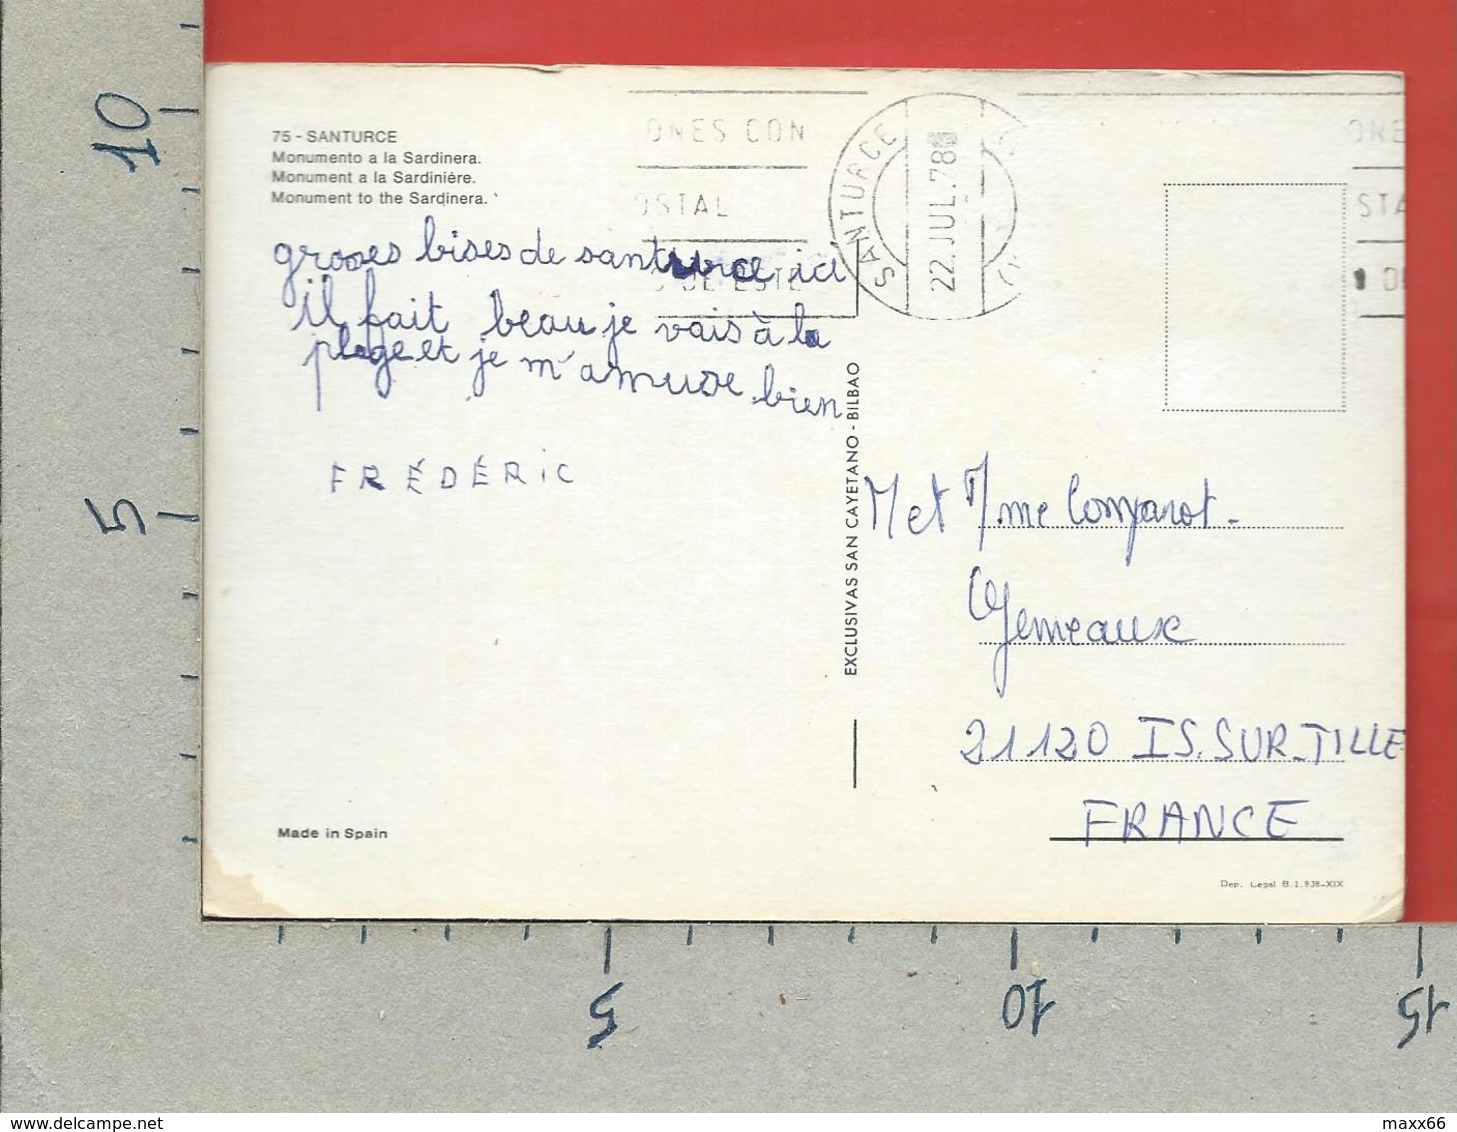 75 - SANTURCE
Monumento a la Sardinera.
Monument a la Sardinière.
Monument to the Sardinera.
grosses bises de santurce ici
il fait beau je vais à la
plage et je m'amuse bien
FRÉDÉRiC
Made in Spain
EXCLUSIVAS SAN CAYETANO - BILBAO
ONES CON
OSTAL
DE ESTE
SANTURCE
22.JUL.78
ONE
STA
M et Mme Comparot.
Gemeaux
21120 IS.SUR-TILLE
FRANCE
Dep. Legal B.I.838-XIX
10
5
5
10
15
delcampe.net
maxx66